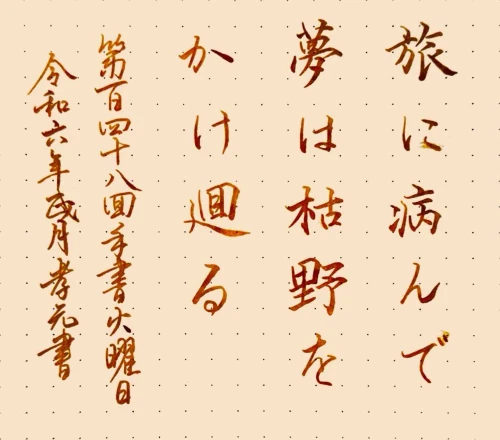 旅に病んで
夢は枯野を
かけ廻る
第百四十八回手書火曜日
令和六年弐月孝元書